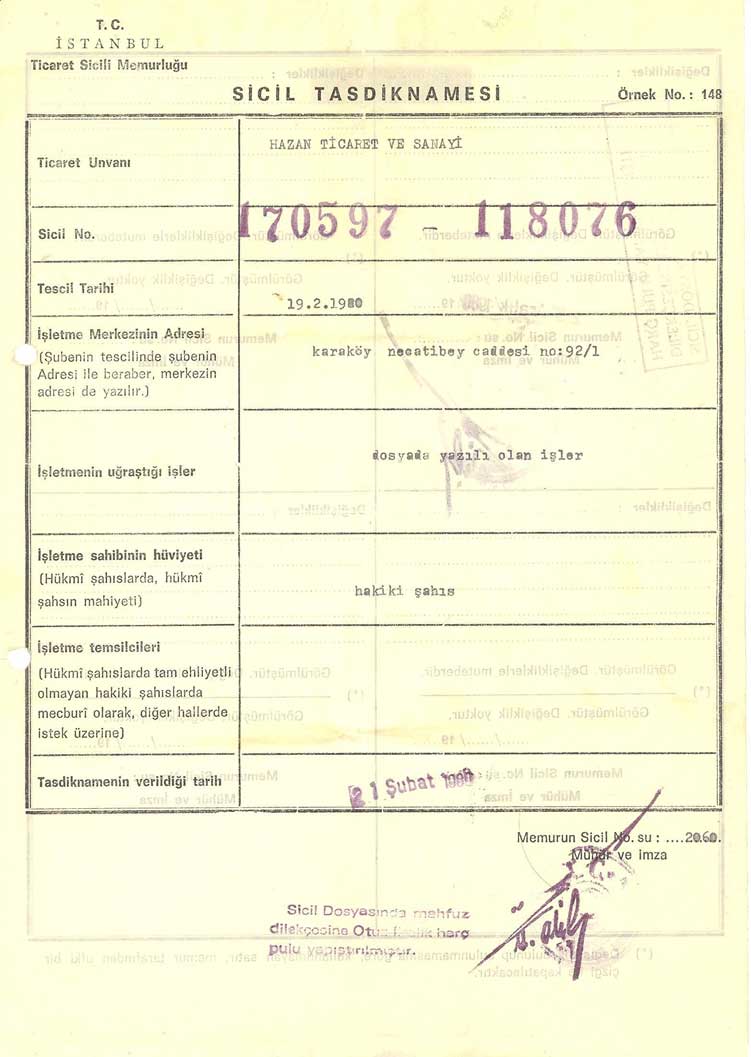 T. C.
İSTANBUL
Ticaret Sicili Memurluğu
SİCİL TASDİKNAMESİ
Örnek No.: 148
Ticaret Unvanı
HAZAN TİCARET VE SANAYİ
Sicil No.
170597 - 118076
Tescil Tarihi
19.2.1980
İşletme Merkezinin Adresi
(Şubenin tescilinde şubenin
Adresi ile beraber, merkezin
adresi de yazılır.)
karaköy necatibey caddesi no:92/1
İşletmenin uğraştığı işler
dosyada yazılı olan işler
İşletme sahibinin hüviyeti
(Hükmî şahıslarda, hükmî
şahsın mahiyeti)
hakiki şahıs
İşletme temsilcileri
(Hükmî şahıslarda tam ehliyetli
olmayan hakiki şahıslarda
mecburî olarak, diğer hallerde
istek üzerine)
Tasdiknamenin verildiği tarih
21 Şubat 1980
Memurun Sicil No. su : ....2060.
Mühür ve imza
Sicil Dosyasında mahfuz
dilekçesine harç
pulu yapıştırılmıştır.